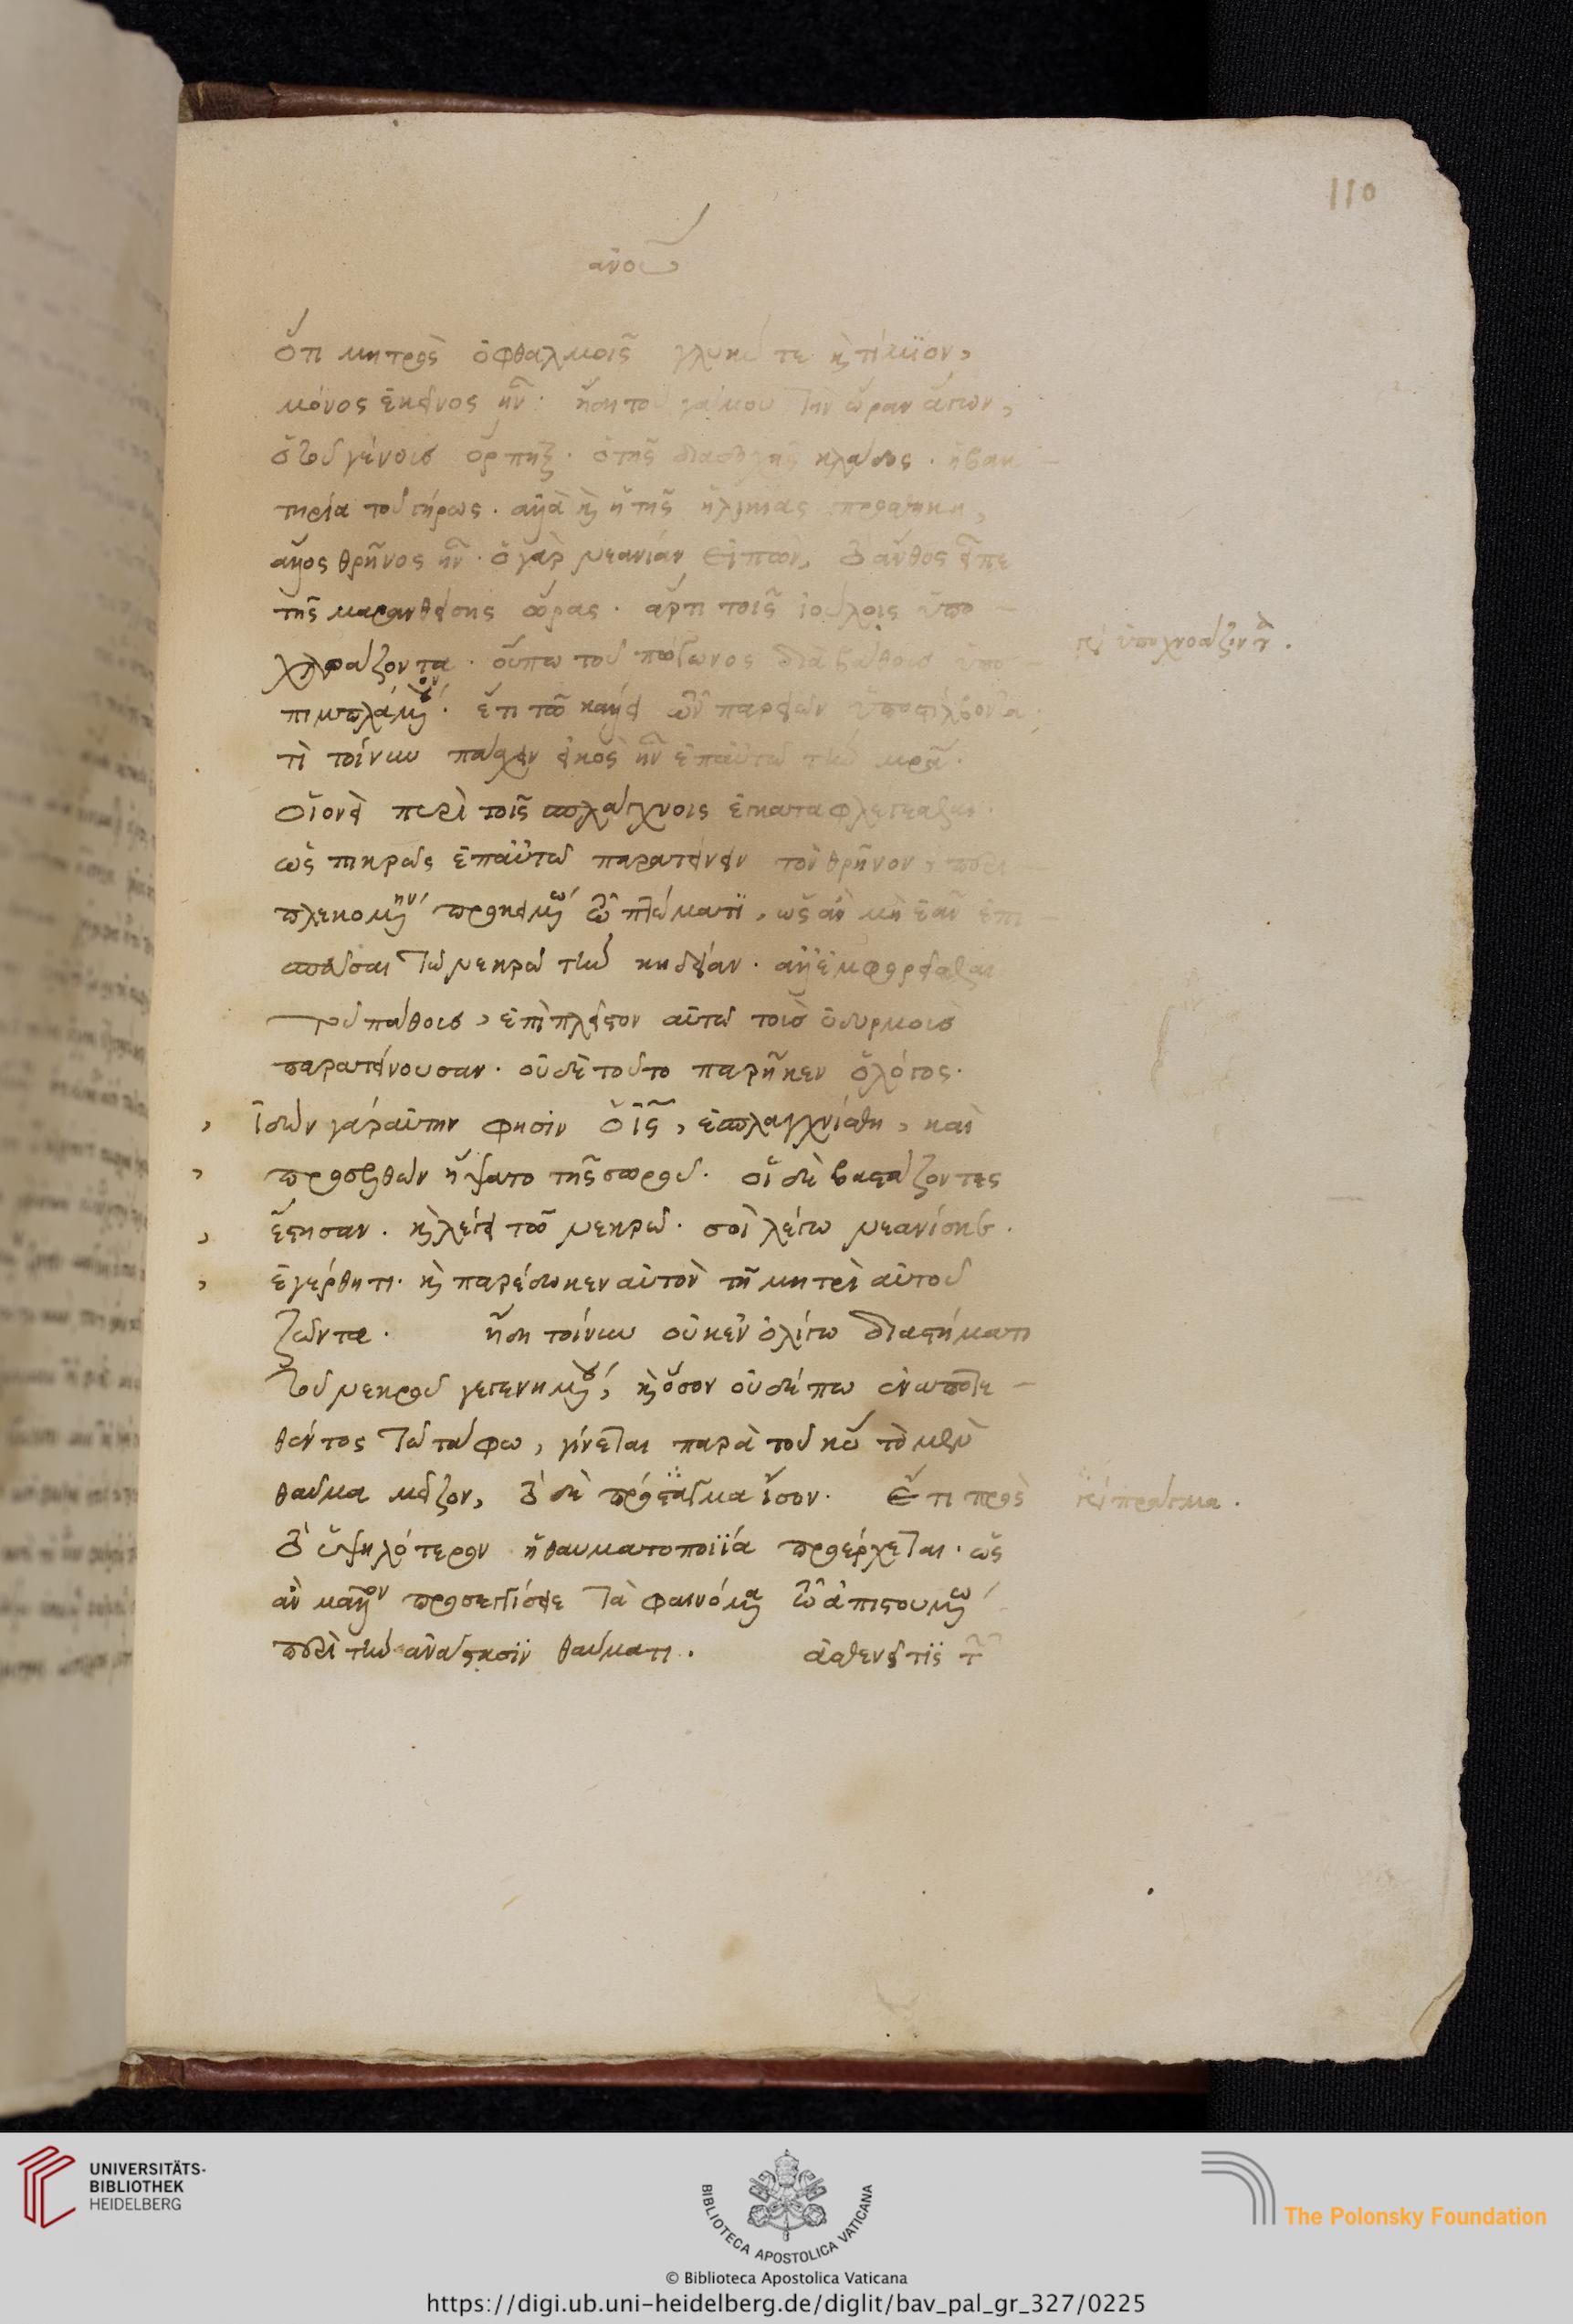 110
ἀνου
ὅτι μητρὸς ὀφθαλμοῖς γλυκύ τε κ̀ τίμϊον,
μόνος ἐκεῖνος ἦν. ἤδη τοῦ γάμου τὴν ὥραν ἄγων,
ὁ τοῦ γένους ὄρπηξ. ὁ τῆς διαδοχῆς κλάδος. ἡ βακ–
τηρία τοῦ γήρως. ἀλλὰ κ̀ ἡ τῆς ἡλικίας προσθήκη,
ἄλλος θρῆνος ἦν. ὁ γὰρ νεανίαν εἰπὼν, τὸ ἄνθος εἶπε
τῆς μαρανθείσης ὥρας. ἄρτι τοῖς ἰούλοις ὑπο–
χλοάζοντα. οὔπω τοῦ πώγωνος διὰ βάθους ὑπο
πιμπλάμενον. ἔτι τῶ κάλλει τῶν παρειῶν ὑποστίλβοντα.
γρ ὑποχνοάζοντα.
τί τοίνυν πάσχειν εἰκὸς ἦν ἐπ' αὐτῶ τὴν μρα̃.
οἱονεὶ πυρὶ τοῖς σπλάγχνοις ἐγκαταφλέγεσθαι.
ὡς πικρῶς ἐπ' αὐτῶ παρατείνειν τὸν θρῆνον, περι
πλεκομένην προκειμένω τῶ πτώματϊ, ὡς ἂν μὴ ἐᾶν ἐπι
σπεῦσαι τῶ νεκρῶ τὴν κηδείαν. ἀλλ' ἐμφορεῖσθαι
τοῦ πάθους, ἐπὶ πλεῖστον αὐτῶ τοὺς ὀδυρμοὺς
παρατείνουσαν. οὐδὲ τοῦτο παρῆκεν ὁ λόγος.
ἰδὼν γὰρ αὐτὴν φησὶν ὁ ις̃, ἐσπλαγχνίσθη, καὶ
προσελθὼν ἥψατο τῆς σοροῦ. οἱ δὲ βαστάζοντες
ἔστησαν. κ̀ λέγει τῶ νεκρῶ. σοὶ λέγω νεανίσκε.
ἐγέρθητι. κ̀ παρέδωκεν αὐτὸν τῆ μητρὶ αὐτοῦ
ζῶντα. ἤδη τοίνυν οὐκ ἐν ὀλίγω διαστήματι
τοῦ νεκροῦ γεγενημένου, κ̀ ὅσον οὐδέπω ἐναποτε–
θέντος τῶ τάφω, γίνεται παρὰ τοῦ κυ̃ τὸ μὲν
θαῦμα μεῖζον, τὸ δὲ πρόσταγμα ἴσον. ἔτι πρὸς
γρ πρᾶγμα.
τὸ ὑψηλότερον ἡ θαυματοποιϊία προέρχεται. ὡς
ἂν μᾶλλον προσεγγίσειε τὰ φαινόμενα τῶ ἀπιστουμένω
περὶ τὴν ἀνάστασϊν θαύματι. ἀσθενεῖ τϊς τ̃
UNIVERSITÄTS-
BIBLIOTHEK
HEIDELBERG
BIBLIOTECA APOSTOLICA VATICANA
The Polonsky Foundation
© Biblioteca Apostolica Vaticana
https://digi.ub.uni-heidelberg.de/diglit/bav_pal_gr_327/0225